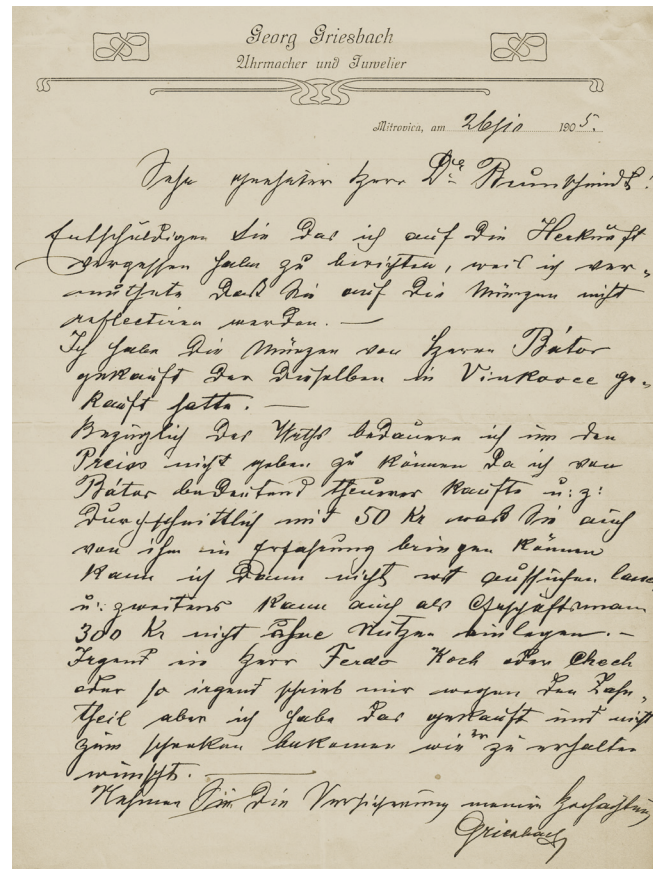 Georg Griesbach
Uhrmacher und Juwelier
Mitrovica, am 26/ 1905.
Sehr geehrter Herr Dr. Brunschmidt!
Entschuldigen Sie das ich auf die Herkunft
vergessen habe zu berichten, weil ich ver-
muthete daß Sie auf die Münzen nicht
reflectiren werden. —
Ich habe die Münzen von Herrn Bátor
gekauft der dieselben in Vinkovce ge-
kauft hatte. —
Bezüglich des Werths bedauere ich um den
Preiss nicht geben zu können da ich von
Bátor bedeutend theurer kaufte u: z:
Durchschnittlich mit 50 Kr was Sie auch
von ihm in Erfahrung bringen können
kann ich dann nicht aussuchen
u: zweitens kann auch als Geschäftsmann
300 Kr nicht ohne Nutzen einlegen. —
Irgend ein Herr Ferdo Koch oder Choch
oder so irgend schrieb mir wegen den Zahn-
theil aber ich habe das gekauft und nicht
zum schenken bekommen wie er zu erhalten
wünscht. —
Nehmen Sie die Versicherung meiner Hochachtung
Griesbach